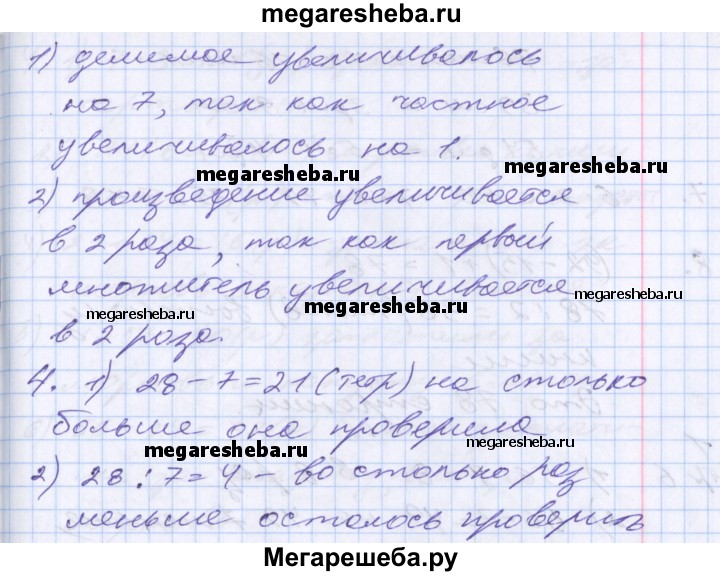 megaresheba.ru
1) делимое увеличивалось
на 7, так как частное
увеличивалось на 1.
megaresheba.ru
megaresheba.ru
2) произведение увеличивается
в 2 раза, так как первый
множитель увеличивается
megaresheba.ru
megaresheba.ru
megaresheba.ru
в 2 раза.
4. 1) 28 - 7 = 21 (тетр) на столько
больше она проверила
megaresheba.ru
megaresheba.ru
2) 28 : 7 = 4 - во столько раз
меньше осталось проверить
Мегарешеба.ру